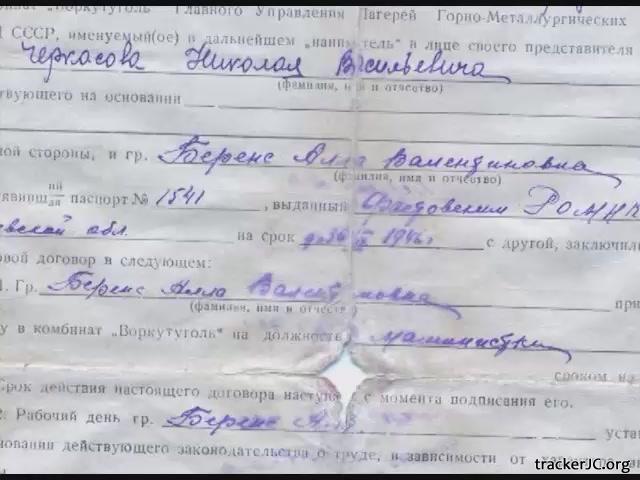 "Воркутуголь" Главного Управления Лагерей Горно-Металлургических
СССР, именуемый(ое) в дальнейшем „наниматель" в лице своего представителя
Черкасова Николая Васильевича
(фамилия, имя и отчество)
ствующего на основании
ной стороны, и гр. Беренс Алла Валентиновна
(фамилия, имя и отчество)
ий
явивш ая паспорт № 1541, выданный РОМНК
вской обл. на срок до 26 1946г с другой, заключили
вой договор в следующем:
1. Гр. Беренс Алла Валентиновна при
(фамилия, имя и отчество)
у в комбинат „Воркутуголь" на должность машинистки
сроком на
Срок действия настоящего договора наступ с момента подписания его.
2. Рабочий день гр. Беренс Ал устан
новании действующего законодательства о труде, в зависимости от
trackerJC.org